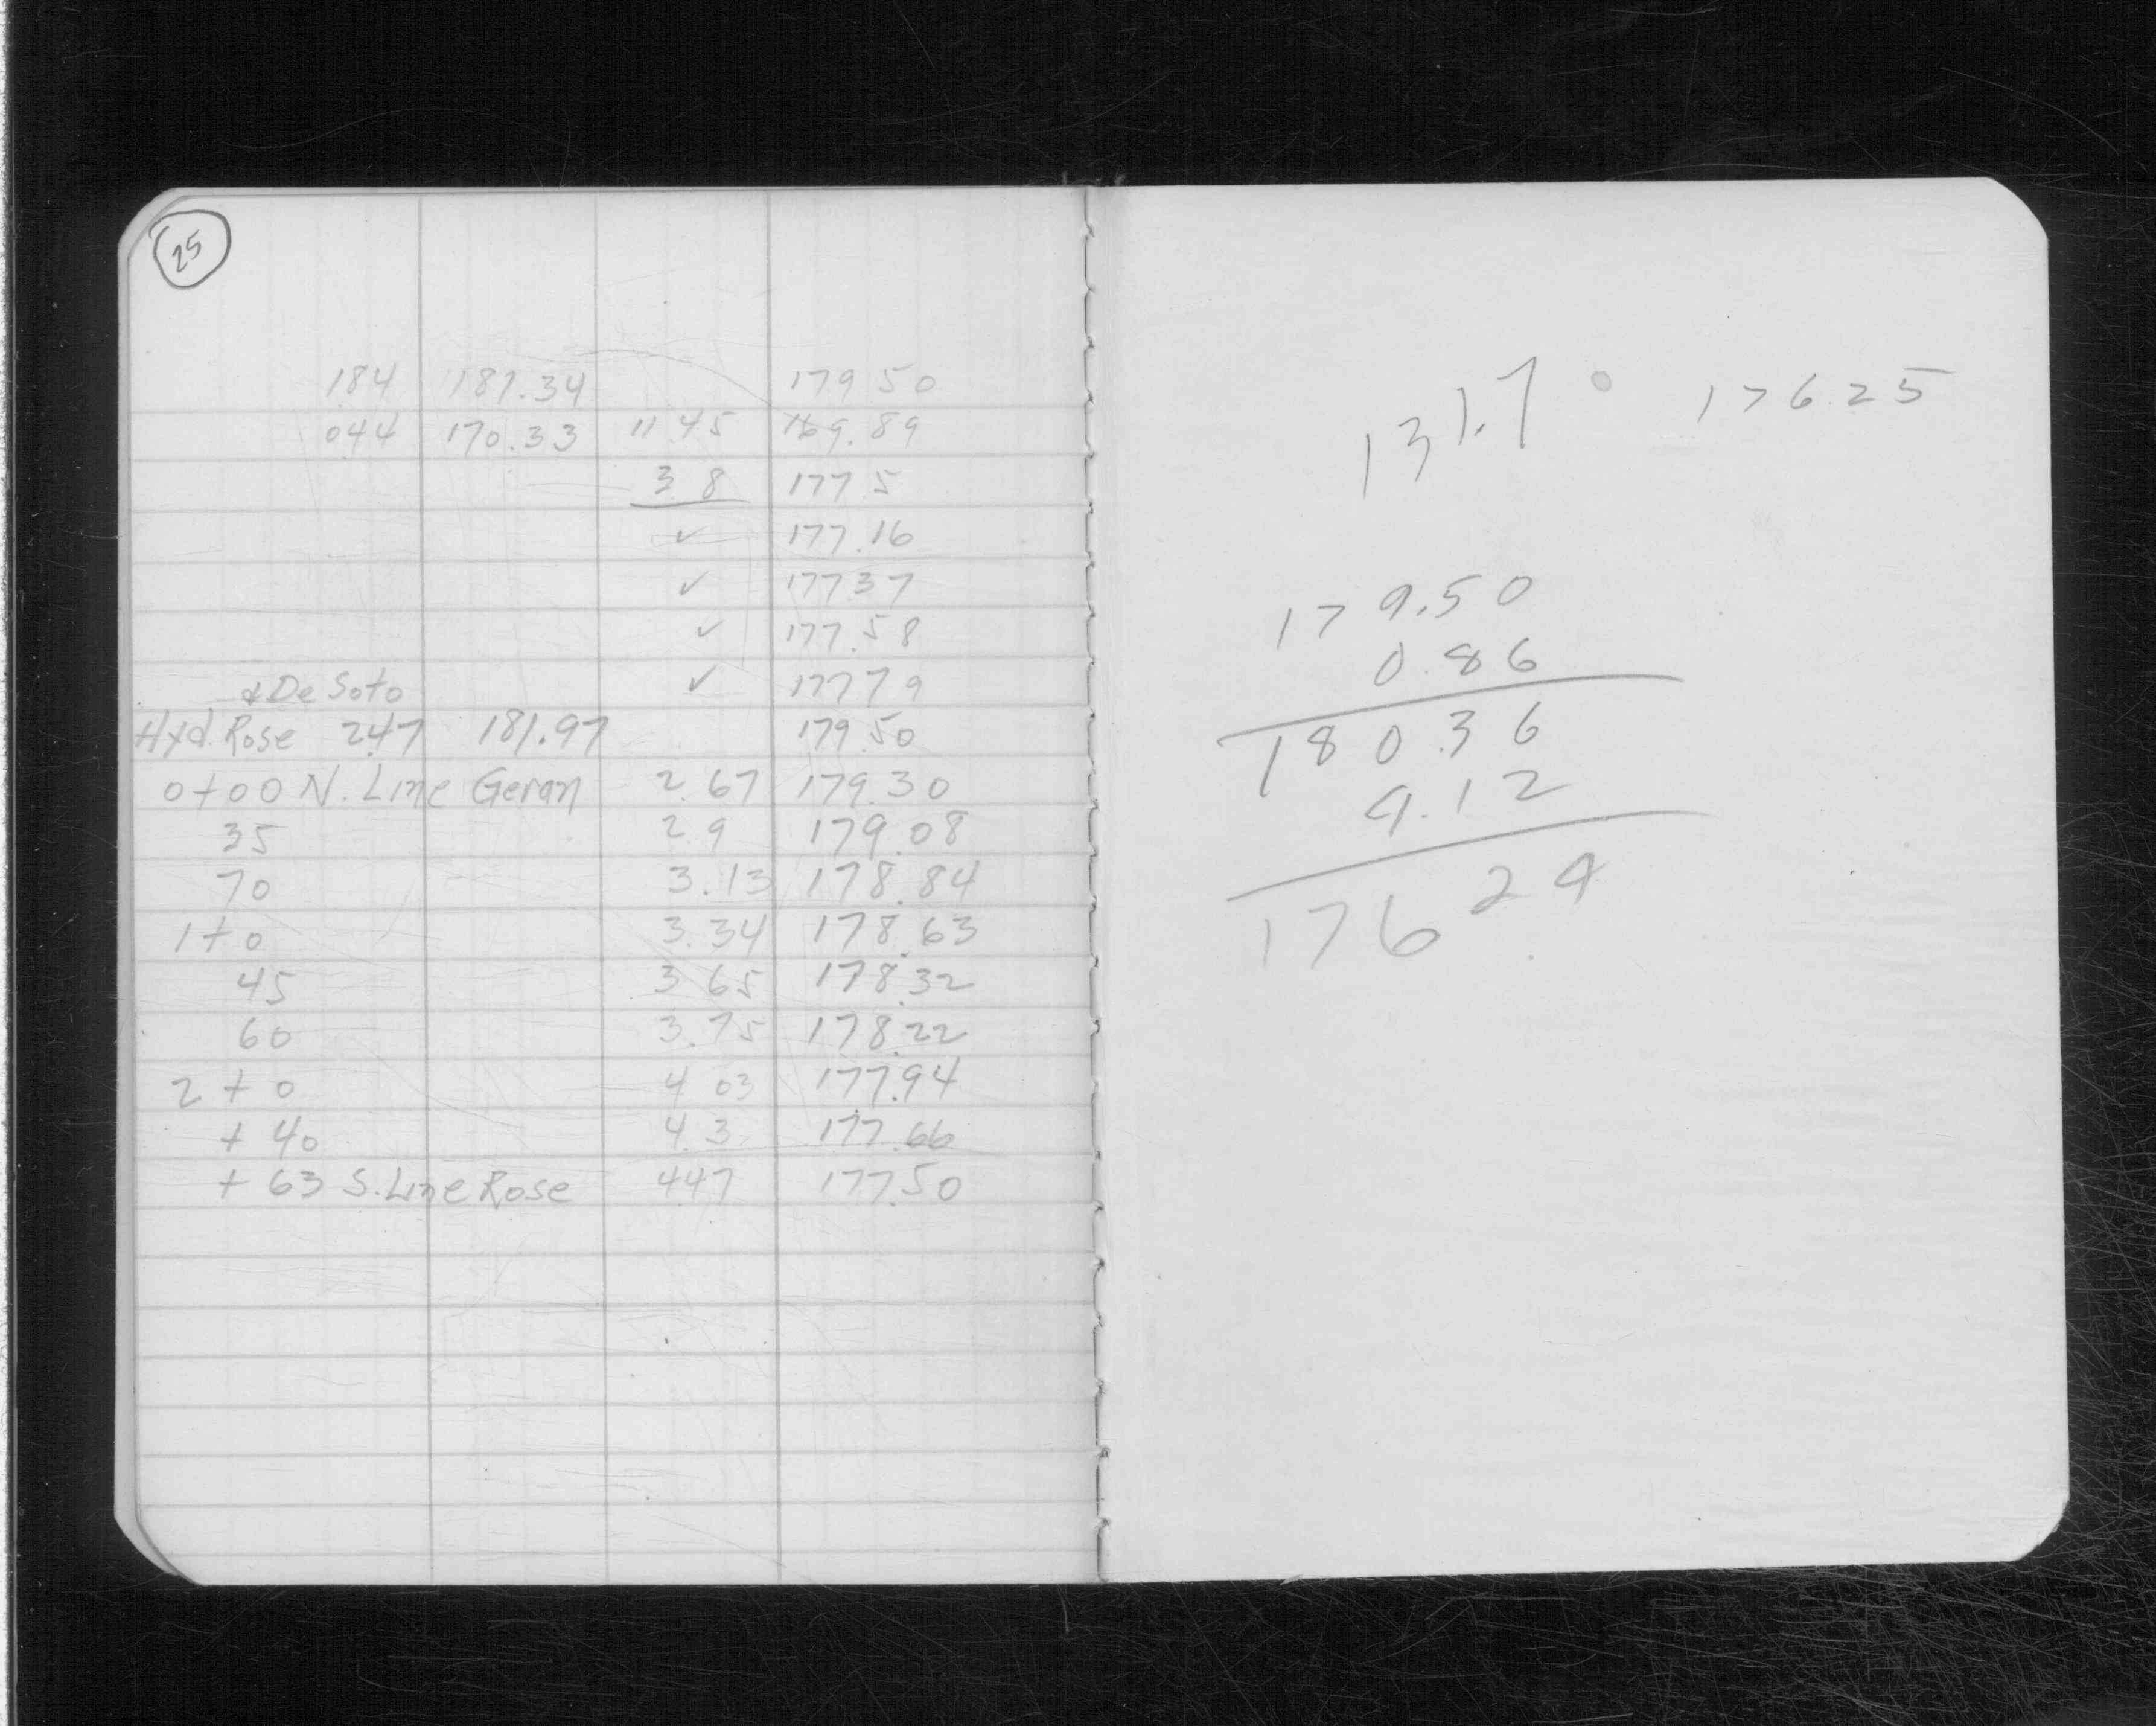 25
184 181.34 179 50
044 170.33 11 45 169.89
3 8 177 5
✓ 177.16
✓ 177 37
✓ 177.58
& De Soto ✓ 177 79
Hyd. Rose 247 181.97 179 50
0+00 N. Line Geran 2.67 179.30
35 2.9 179.08
70 3.13 178.84
1+0 3.34 178.63
45 3 65 178.32
60 3.75 178.22
2+0 4 03 177.94
+40 4.3 177.66
+63 S. Line Rose 447 177.50
131.7° 176 25
179.50
0.86
180.36
9.12
176 24